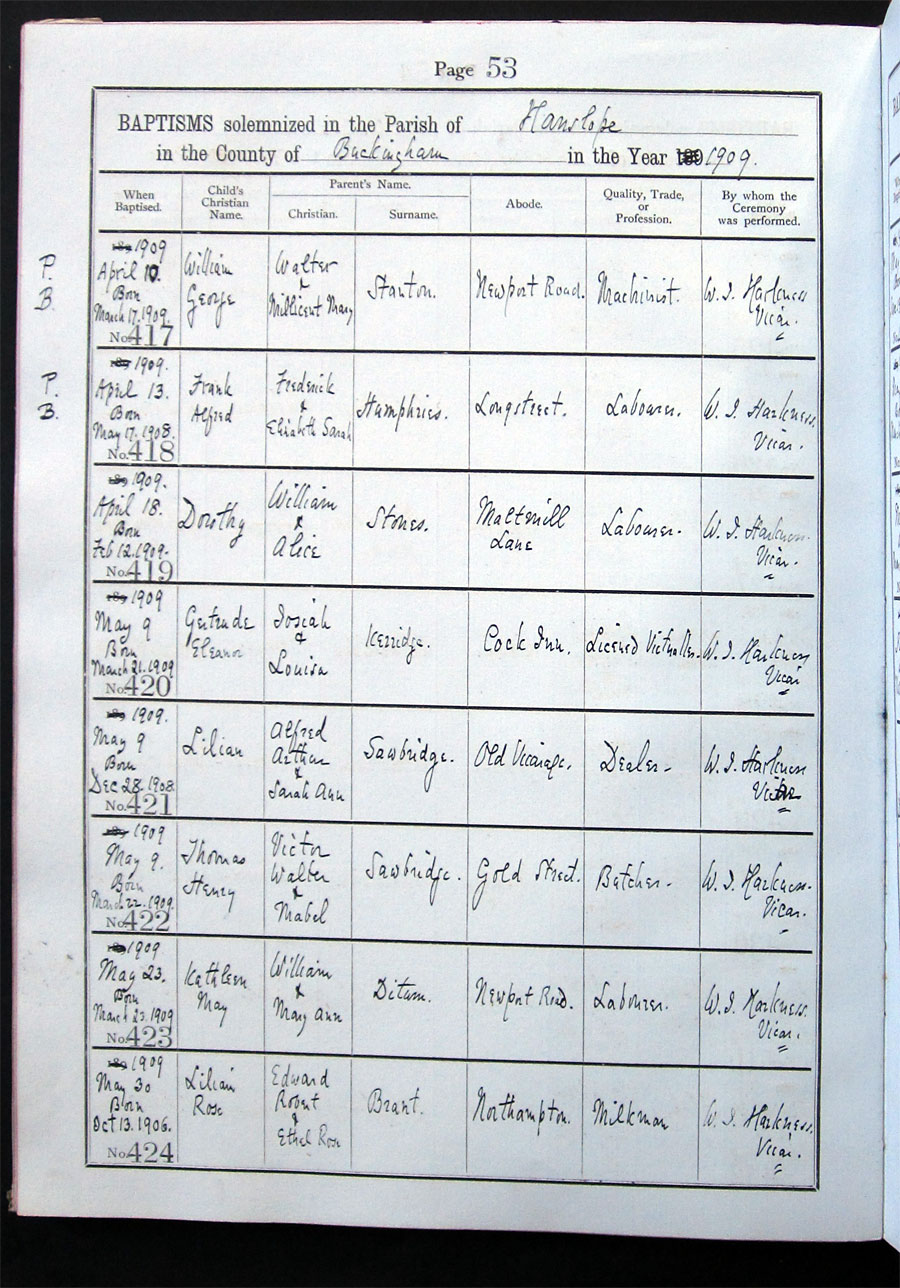 Page 53
BAPTISMS solemnized in the Parish of Hanslope
in the County of Buckingham in the Year 189 1909.
When Baptised.
Child's Christian Name.
Parent's Name.
Christian.
Surname.
Abode.
Quality, Trade, or Profession.
By whom the Ceremony was performed.
P.
B.
189 1909
April 10.
Born
March 17. 1909.
No. 417
William
George
Walter
&
Millicent Mary
Stanton.
Newport Road.
Machinist.
W. J. Harkness
Vicar.
P.
B.
189 1909.
April 13.
Born
May 17. 1908.
No. 418
Frank
Alfred
Frederick
&
Elizabeth Sarah
Humphries.
Longstreet.
Labourer.
W. J. Harkness.
Vicar.
189 1909.
April 18.
Born
Feb 12. 1909.
No. 419
Dorothy
William
&
Alice
Stones.
Maltmill
Lane
Labourer.
W. J. Harkness.
Vicar.
189 1909
May 9
Born
March 21. 1909
No. 420
Gertrude
Eleanor
Josiah
&
Louisa
Kerridge.
Cock Inn.
Licensed Victualler.
W. J. Harkness
Vicar
189 1909.
May 9
Born
Dec 28. 1908.
No. 421
Lilian
Alfred
Arthur
&
Sarah Ann
Sawbridge.
Old Vicarage.
Dealer.
W. J. Harkness
Vicar
189 1909
May 9.
Born
March 22. 1909.
No. 422
Thomas
Henry
Victor
Walter
&
Mabel
Sawbridge.
Gold Street.
Butcher.
W. J. Harkness.
Vicar.
189 1909
May 23.
Born
March 23. 1909
No. 423
Kathleen
May
William
&
Mary Ann
Ditum.
Newport Road.
Labourer.
W. J. Harkness.
Vicar.
189 1909
May 30
Born
Oct 13. 1906.
No. 424
Lilian
Rose
Edward
Robert
&
Ethel Rose
Brant.
Northampton.
Milkman
W. J. Harkness.
Vicar.